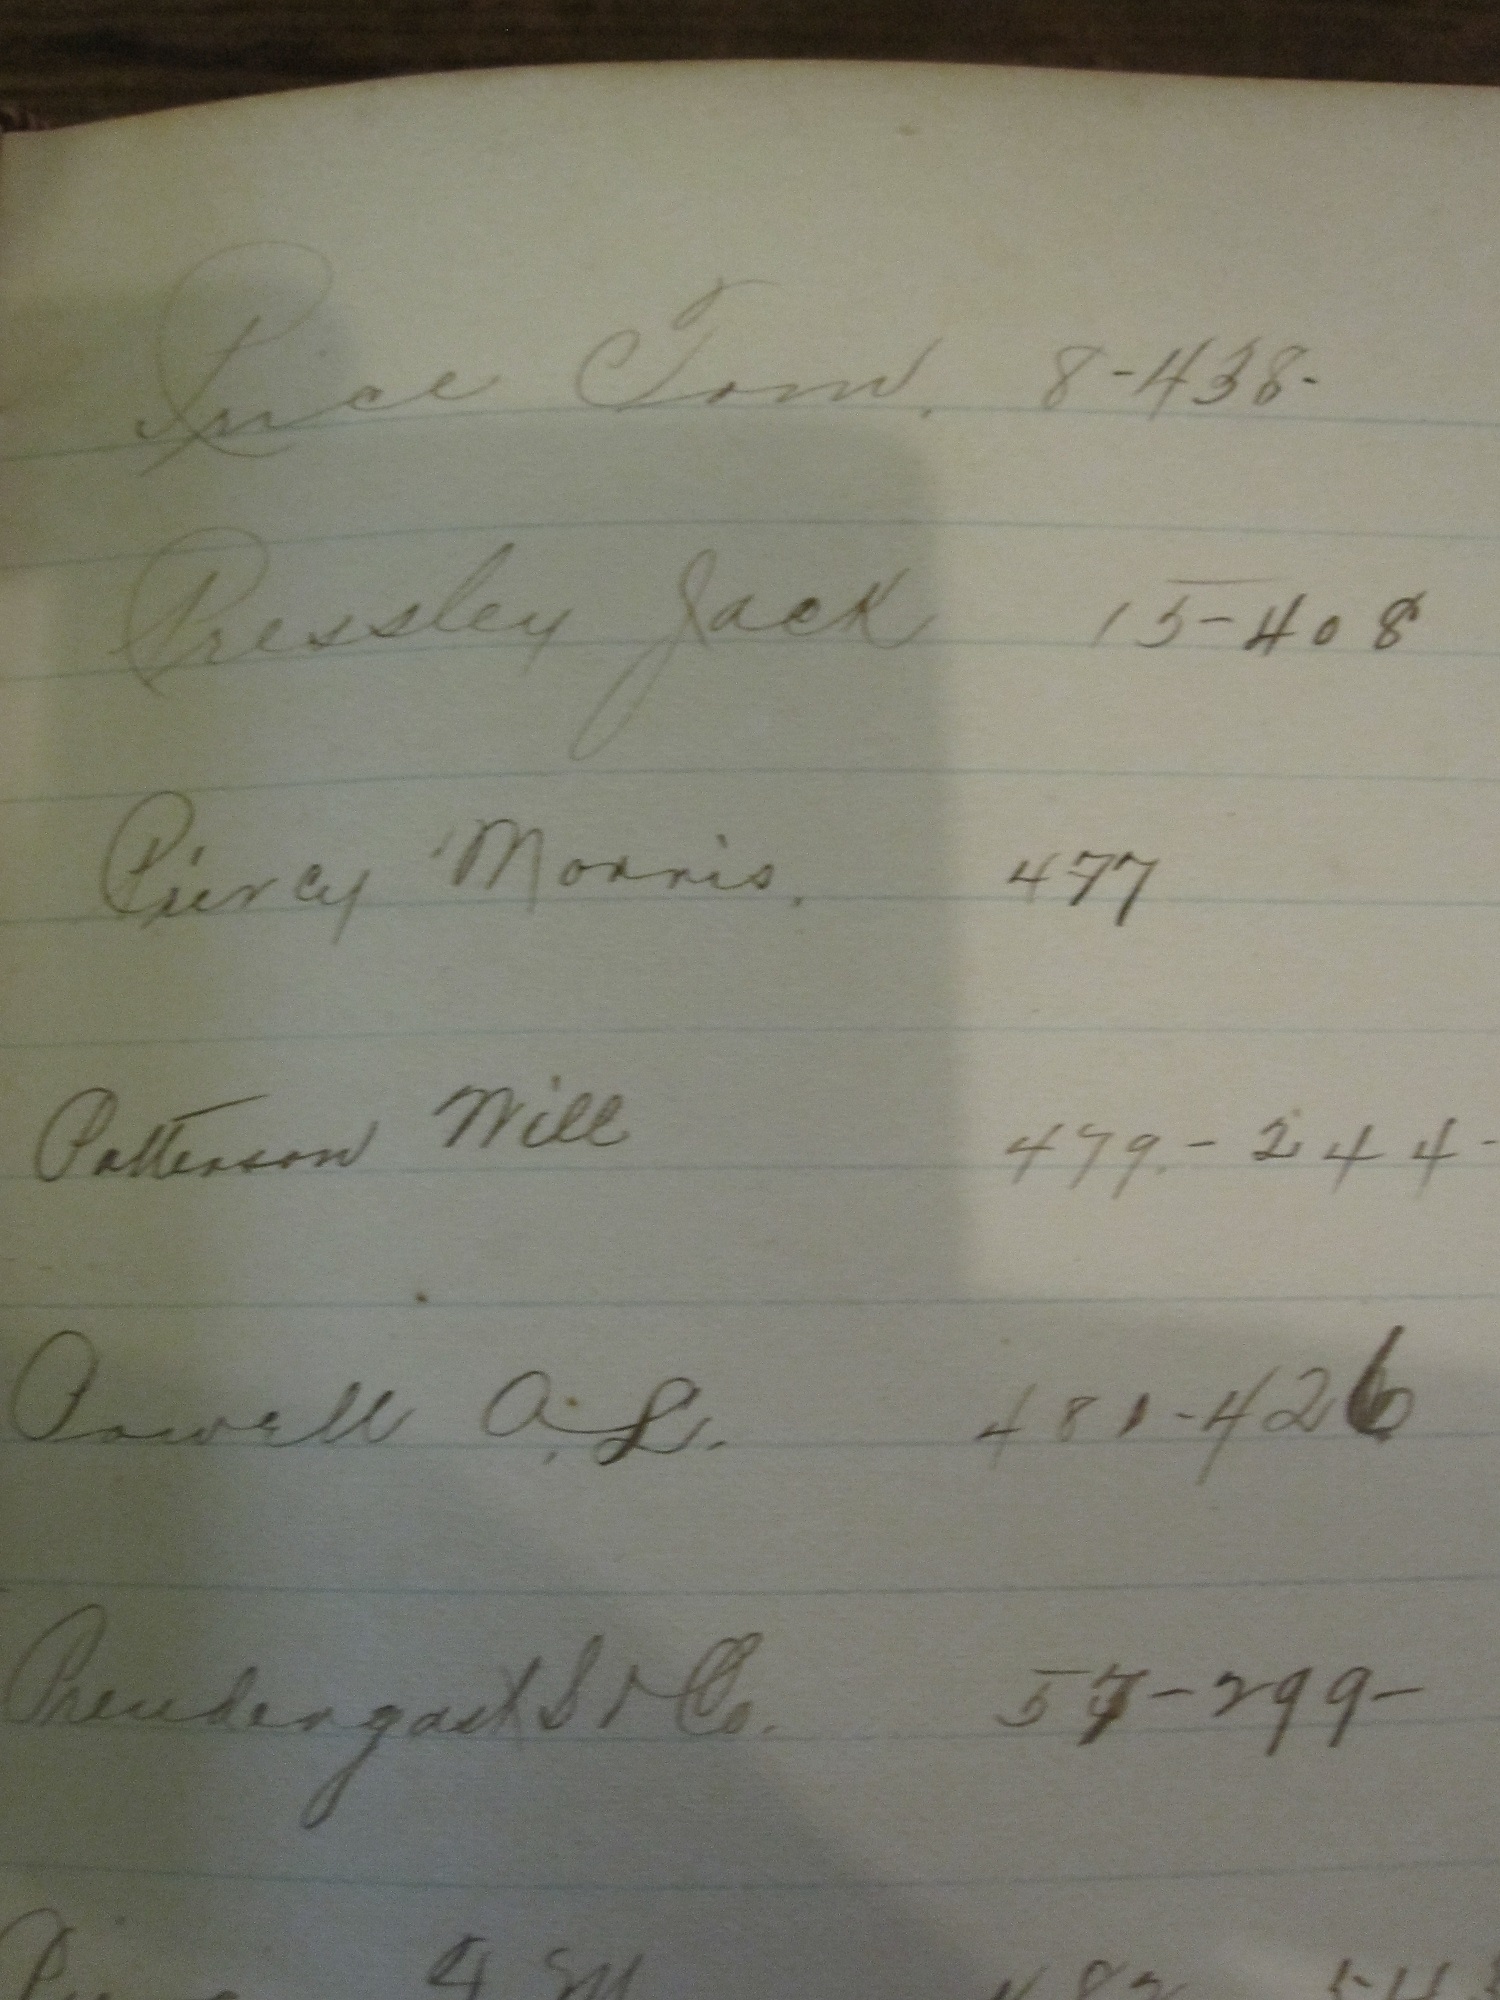 Price Tom. 8-438-
Pressley Jack 15-408
Piercy Morris. 477
Patterson Will 479.-244-
Powell A. L. 481-426
Prendergast & Co. 57-299-